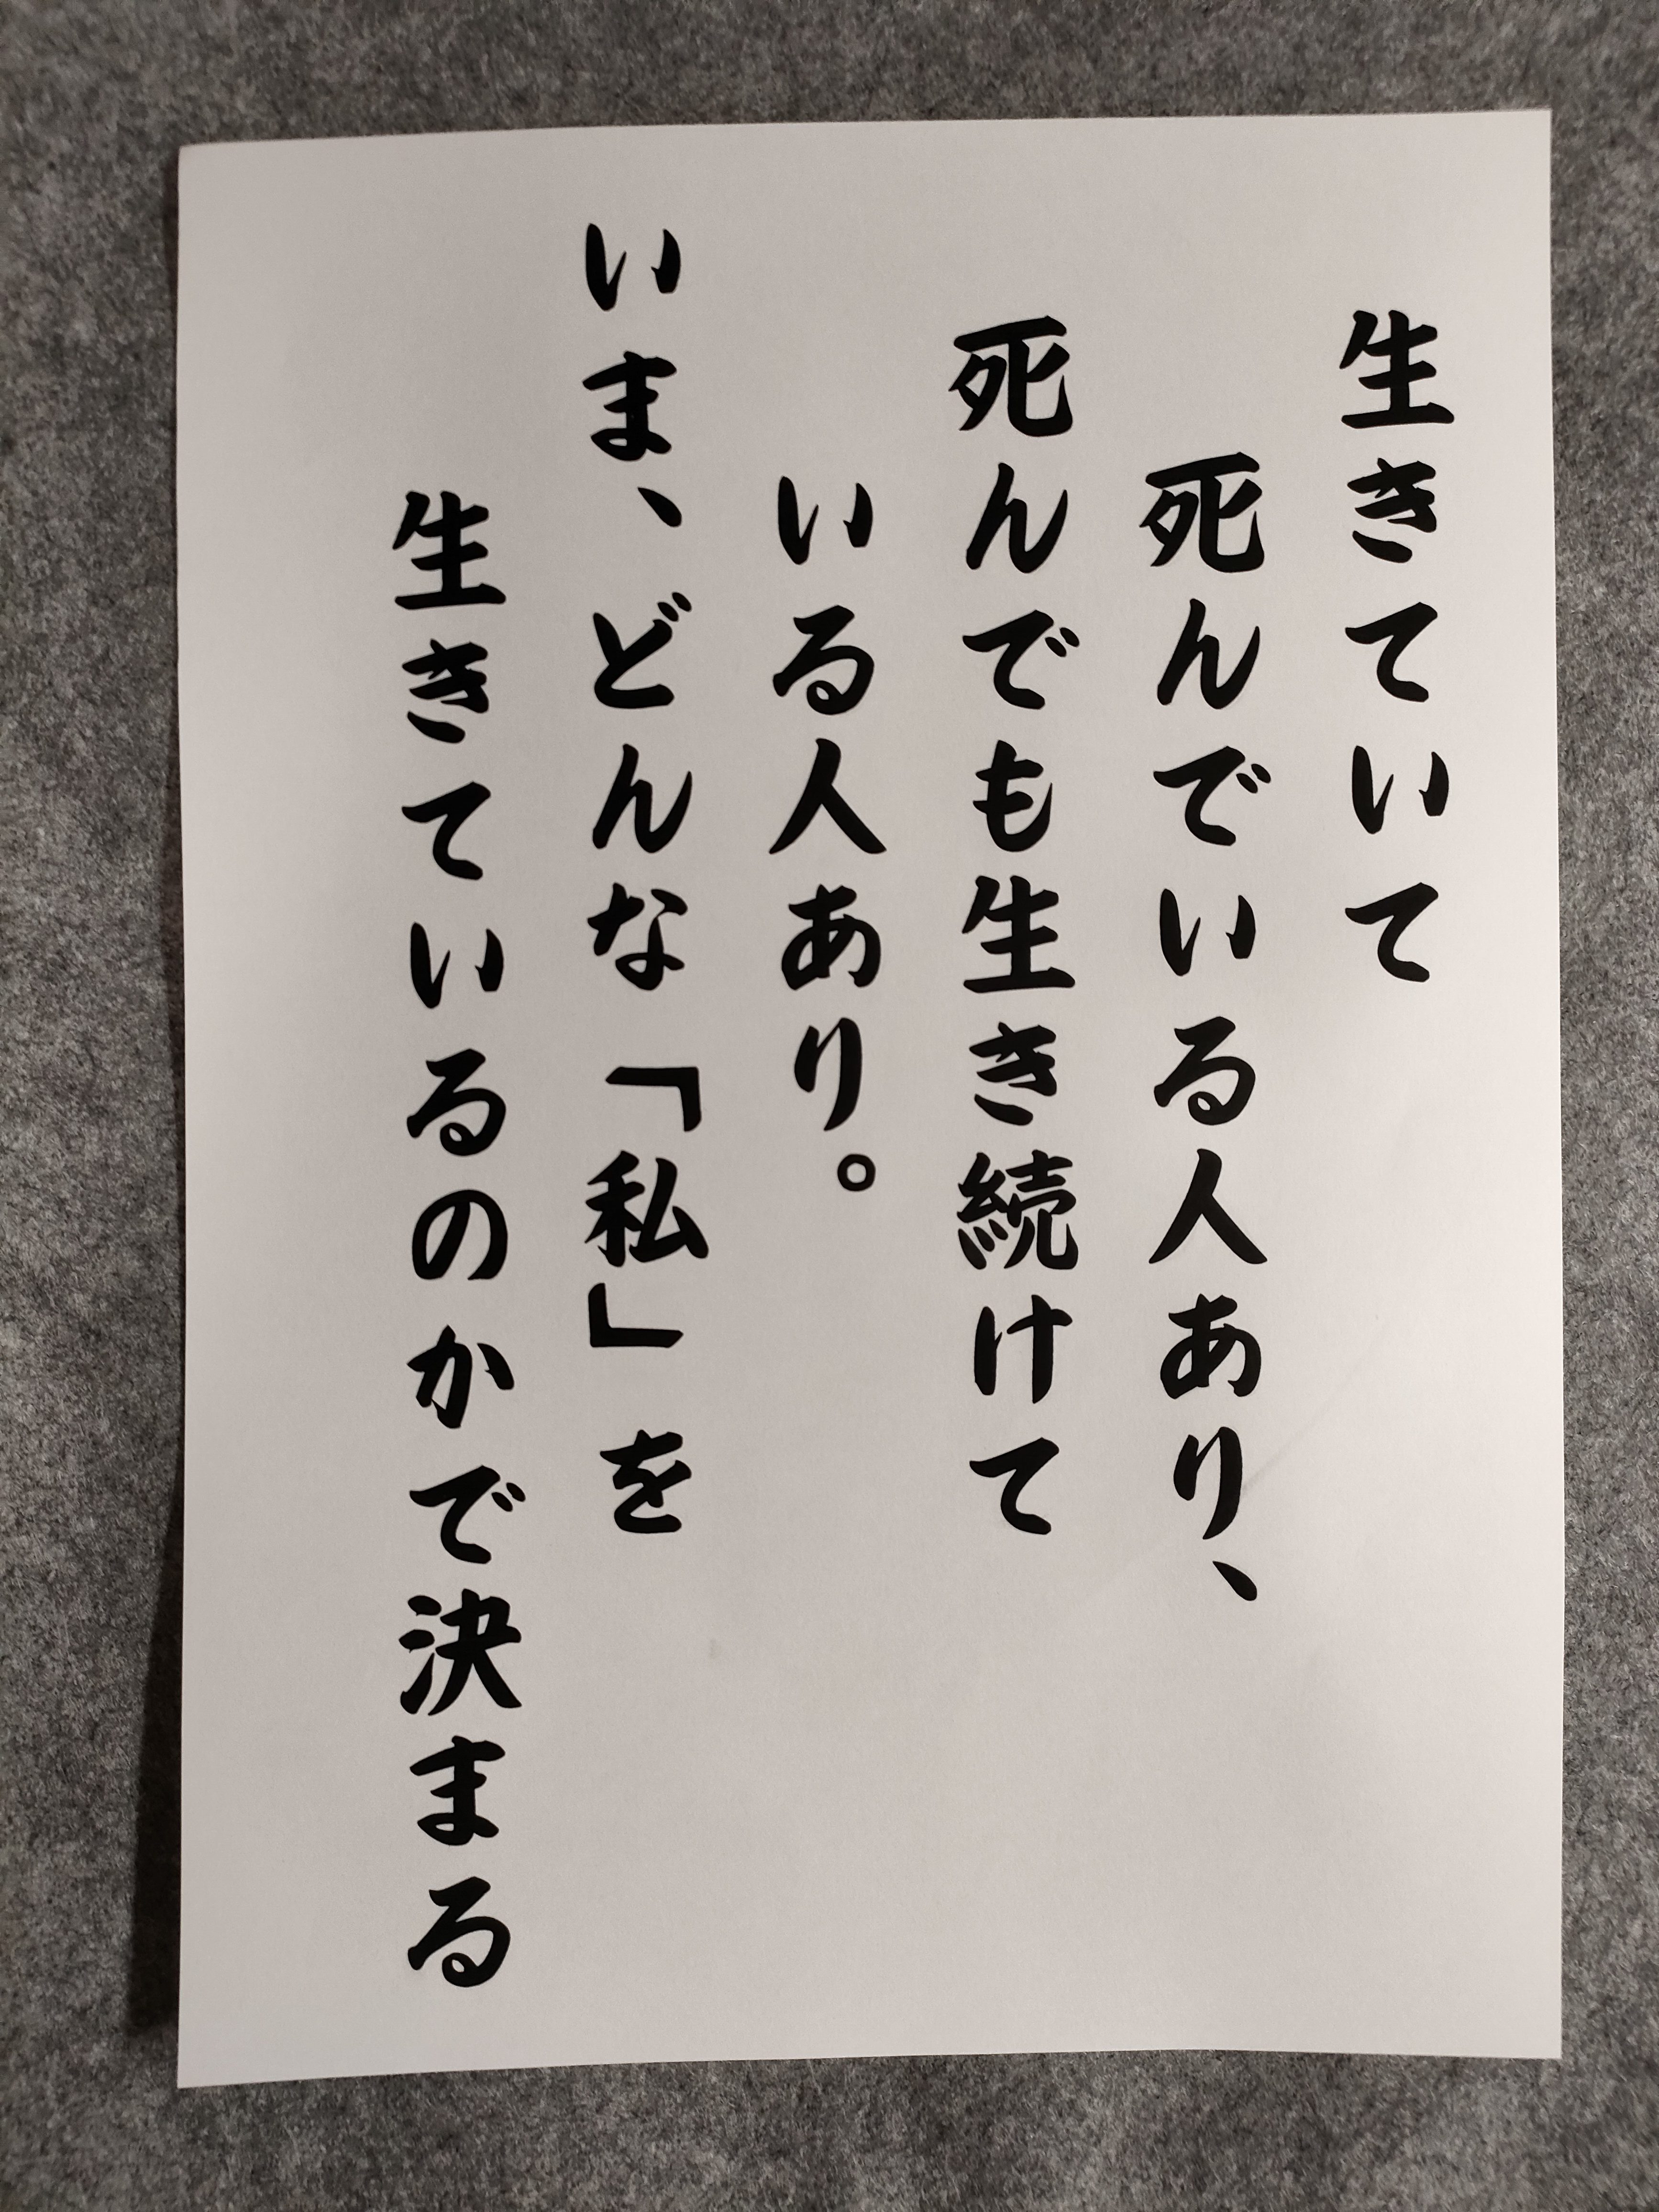 生きていて
死んでいる人あり、
死んでも生き続けて
いる人あり。
いま、どんな「私」を
生きているのかで決まる